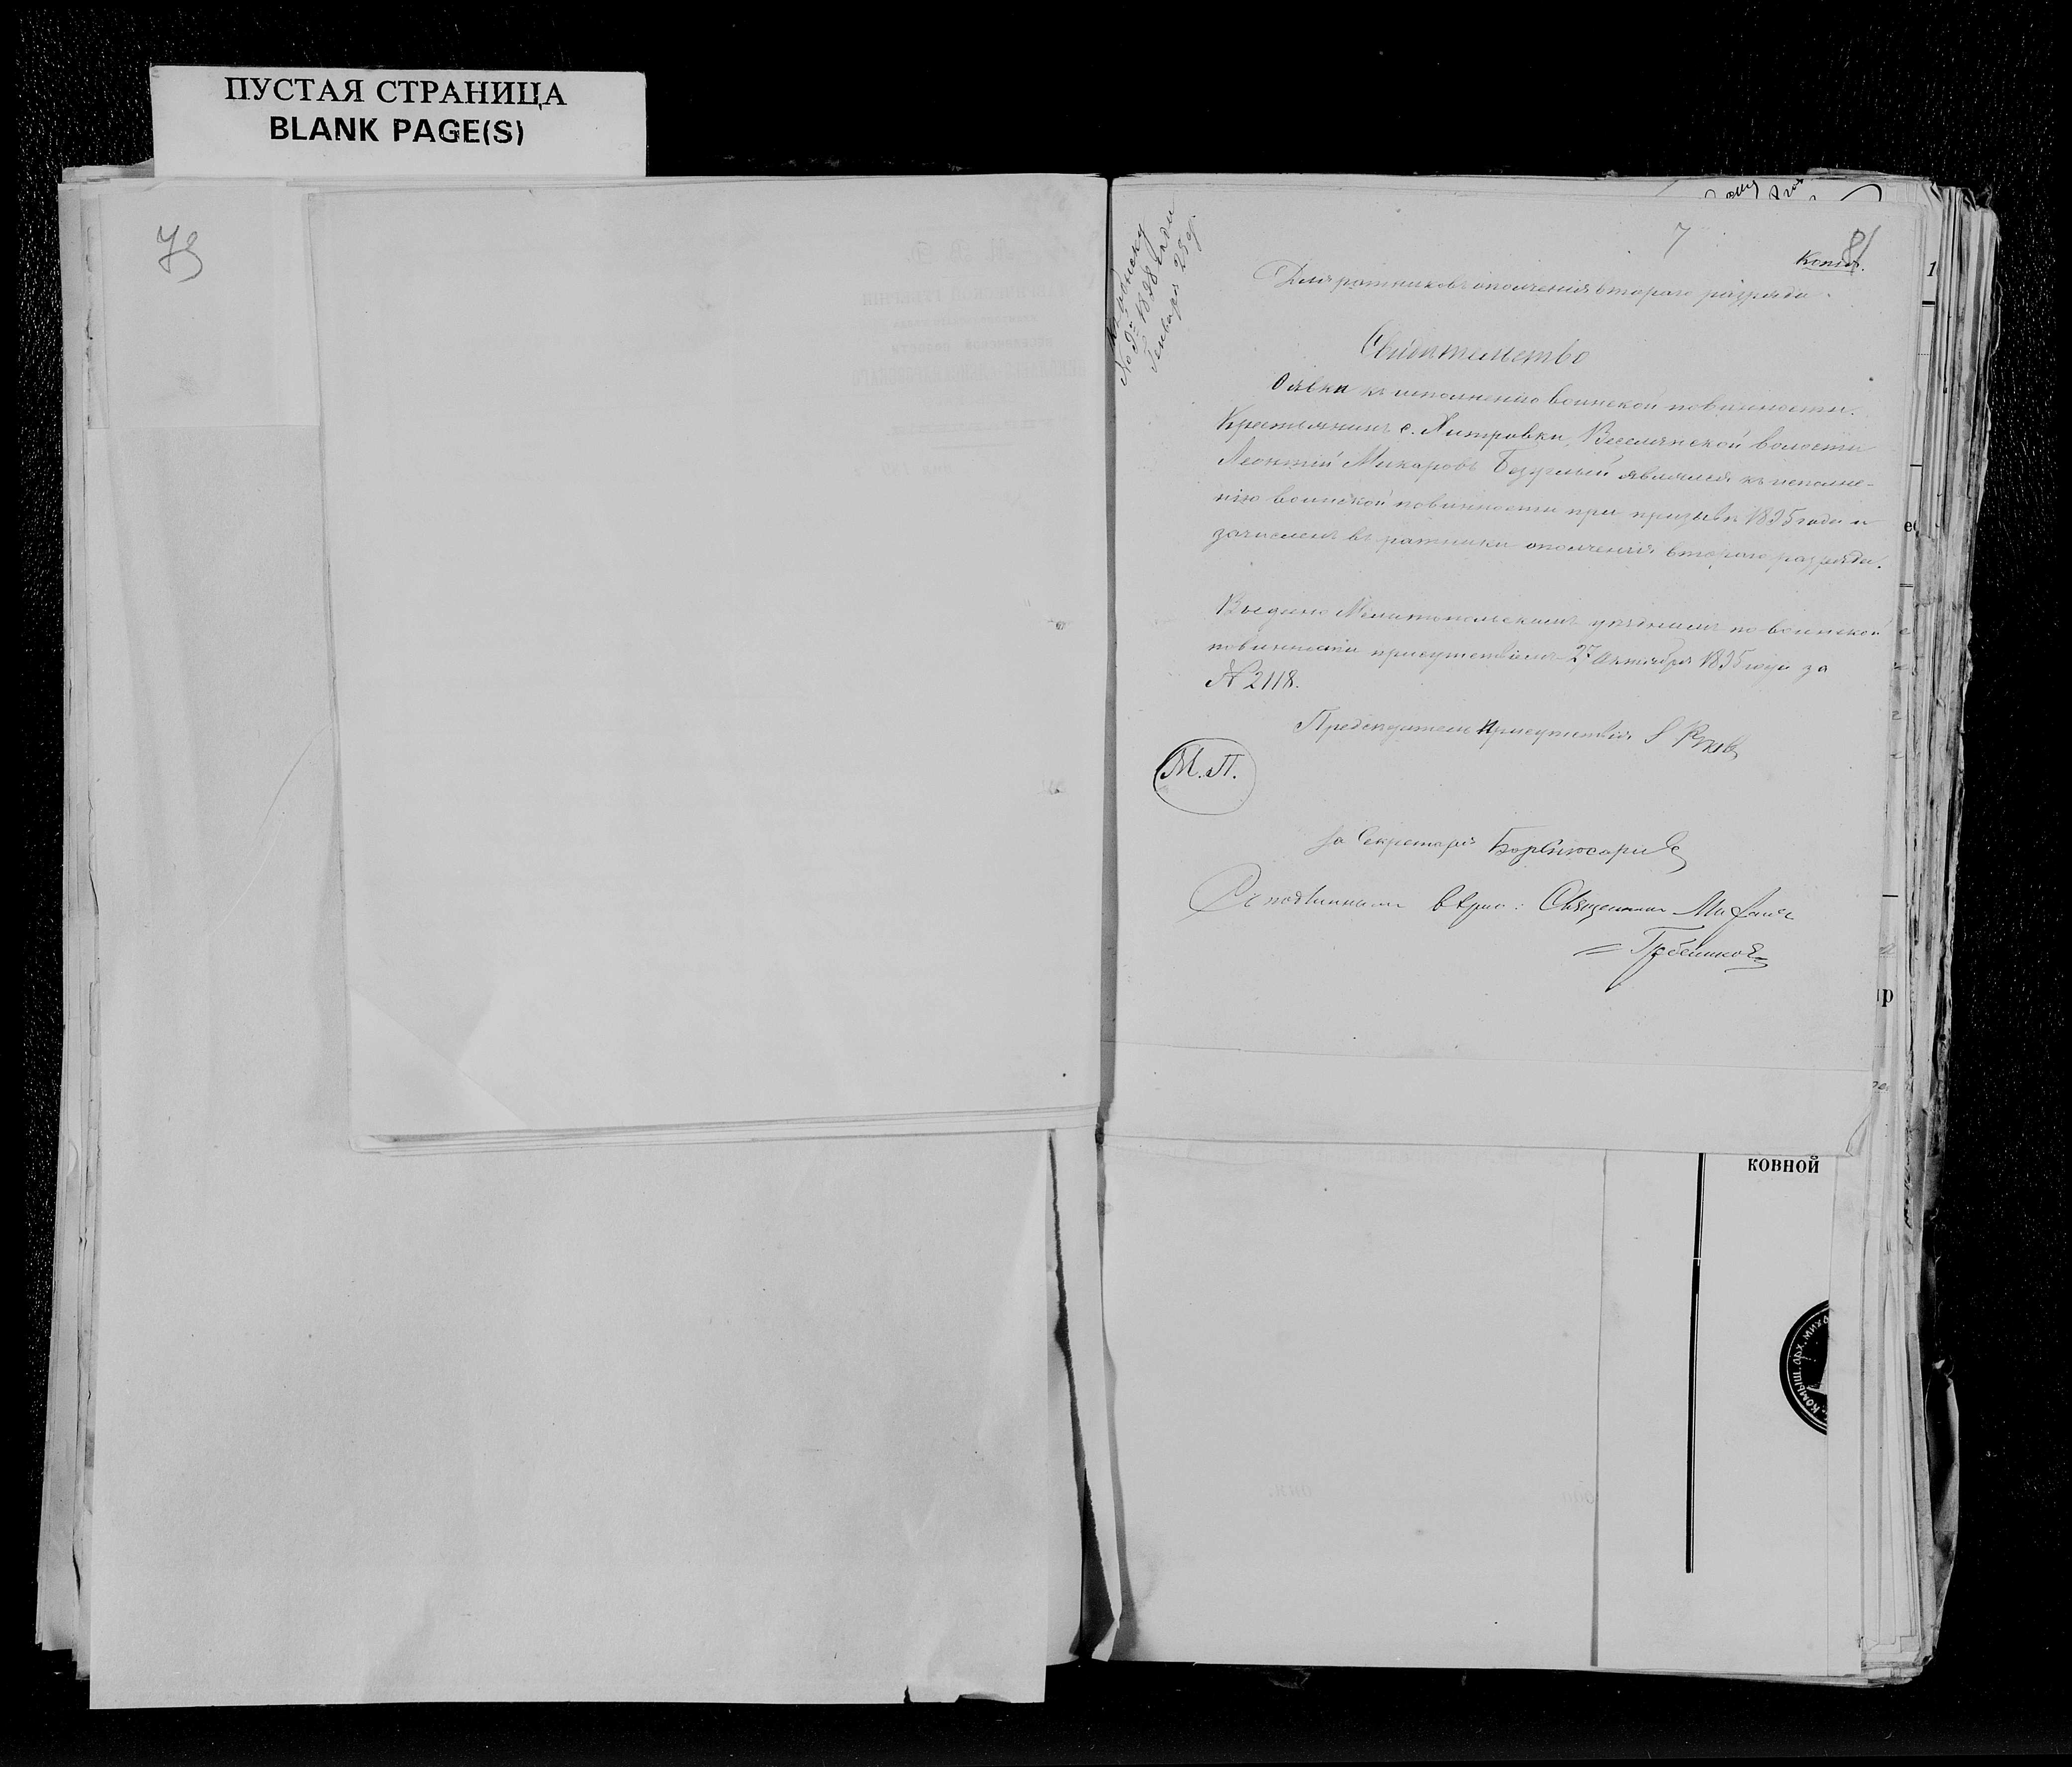 ПУСТАЯ СТРАНИЦА
BLANK PAGE(S)
79
7
81
Копія.
Къ обыску
No 9й 1898 года
Января 25 д.
Для ратниковъ ополченія втораго разряда.
Свидѣтельство
О явкѣ къ исполненію воинской повинности.
Крестьянинъ с. Хитровки, Веселянской волости
Леонтій Макаровъ Безуглый являлся къ исполне-
нію воинской повинности при призывѣ 1895 года и
зачисленъ въ ратники ополченія втораго разряда.
Выдано Мелитопольскимъ уѣзднымъ по воинской
повинности присутствіемъ 27 Октября 1895 года за
№ 2118.
Предсѣдатель Присутствія
М.П.
За Секретаря
Съ подлиннымъ вѣрно: Священникъ Михаилъ
Гребенниковъ
ковной